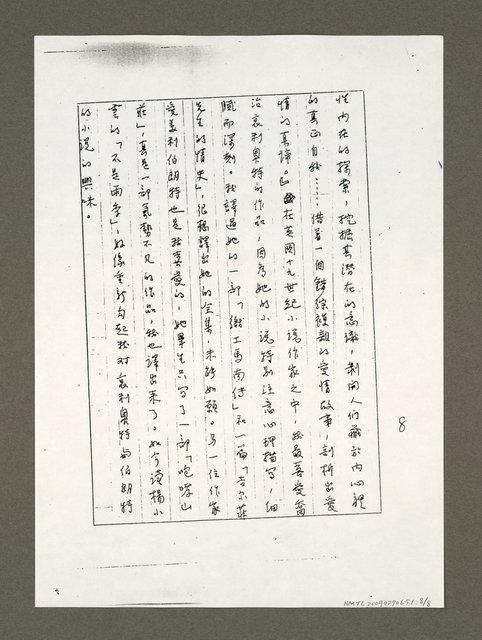 性內在的探索,挖掘其潛在的意識,剝開人們藏於內心裡
的真正自我……借著一個錯綜複雜的愛情故事,剖析出愛
情的真諦。在英國十九世紀小說作家之中,我最喜愛喬
治哀利奧特的作品,因為她的小說特別注意心理描寫,細
膩而深刻。我譯過她的一部「織工馬南傳」和一篇「吉爾菲
先生的情史」,很想譯出她的全集,未能如願。另一位作家
愛美利伯朗特也是我喜愛的,她畢生只寫了一部「咆哮山
莊」,真是一部氣勢不凡的作品,我也譯出來了。如今讀楊小
雲的「不是雨季」,好像重新勾起我對哀利奧特與伯朗特
的小說的興味。
8
NMTL20090290651 8/8